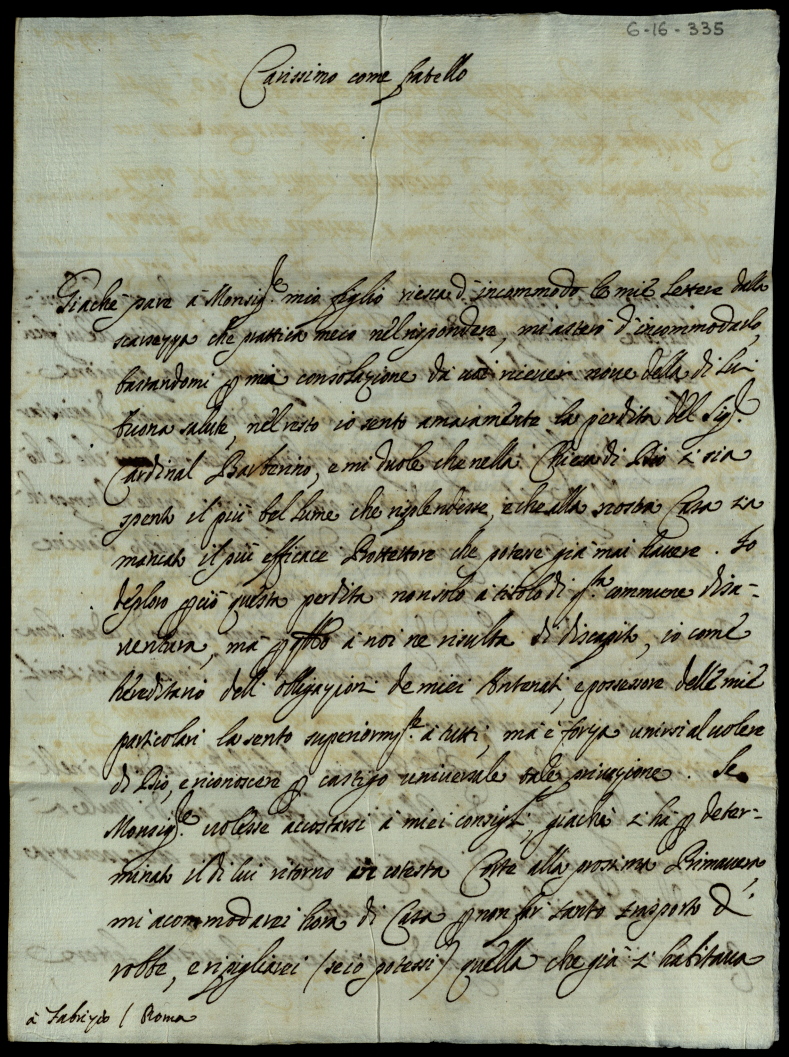 6-16-335
Carissimo come fratello
Giache pare à Monsig.re mio figlio riesca d'incommodo le mie lettere dalla
scarsezza che prattica meco nel rispondere, mi asterò d'incommodarlo,
bastandomi p mia consolazione di riceuer noue della di Lui
buona salute, nel resto io sento amaramente la perdita del Sig.r
Cardinal Barberino, e mi duole che nella Chiesa di Dio si sia
spento il più bel lume che risplendesse, e che alla nostra Casa sia
mancato il più efficace Prottettore che potesse già mai hauere. Io
deploro p ciò questa perdita non solo à titolo di commune disa-
uentura, mà p à noi ne risulta di discapito, io come
hereditario dell' obligazioni de miei Antenati, e possessore delle mie
particolari la sento superiorm.te à tutti, mà è forza unirsi al uolere
di Dio, e riconoscere p castigo uniuersale tale priuazione. Se
Monsig.re uolesse accostarsi à miei consigli, giache si ha p deter-
minato il di lui ritorno cotesta Corte alla prossima Primauera,
mi acommodarei hora di Casa p non far tanto trasporto di
robbe, e ripigliarei (se cio potessi) quella che già si habitaua
à Fabrizio / Roma